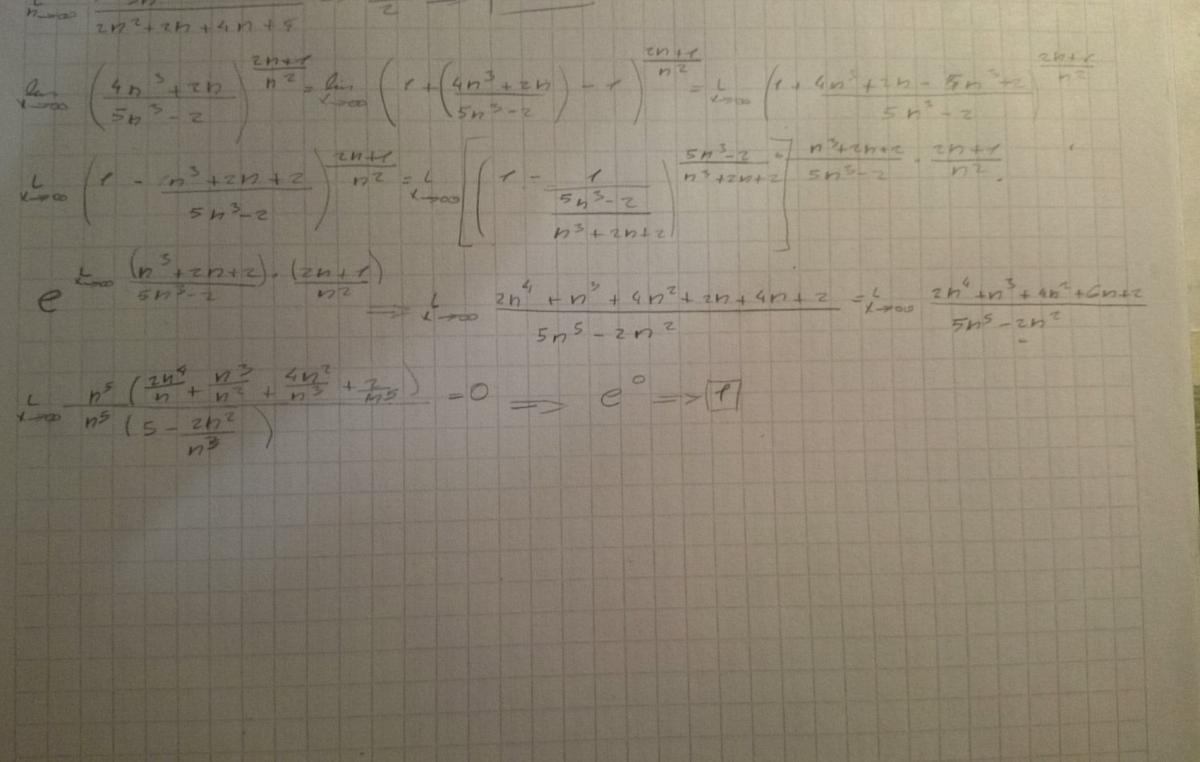 2n²+2n+4n+5
lim x→∞ ((4n³+2n)/(5n³-2))^((2n+1)/n²) = lim x→∞ (1+((4n³+2n)/(5n³-2))-1)^((2n+1)/n²) = L x→∞ (1+(4n³+2n-5n³+2)/(5n³-2))^((2n+1)/n²)
L x→∞ (1-(n³+2n+2)/(5n³-2))^((2n+1)/n²) = L x→∞ [(1-1/((5n³-2)/(n³+2n+2)))^((5n³-2)/(n³+2n+2))]^((n³+2n+2)/(5n³-2)·(2n+1)/n²)
e^(L x→∞ (n³+2n+2)/(5n³-2)·(2n+1)/n²) => L x→∞ (2n⁴+n³+4n²+2n+4n+2)/(5n⁵-2n²) = L x→∞ (2n⁴+n³+4n²+6n+2)/(5n⁵-2n²)
L x→∞ n⁵(2n⁴/n+n³/n²+4n²/n³+2/n⁵)/n⁵(5-2n²/n³) =0 => e⁰ => 1